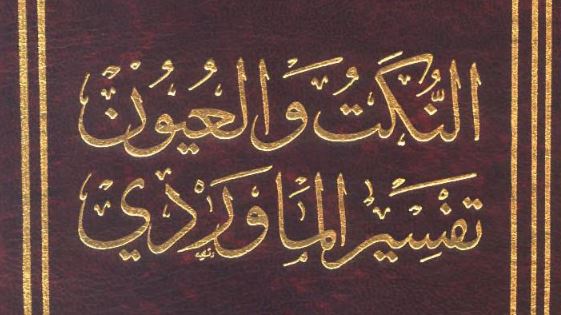 النُّكَتُ وَالعُيُونُ
تَفْسِيرُ المَاوَرْدِي